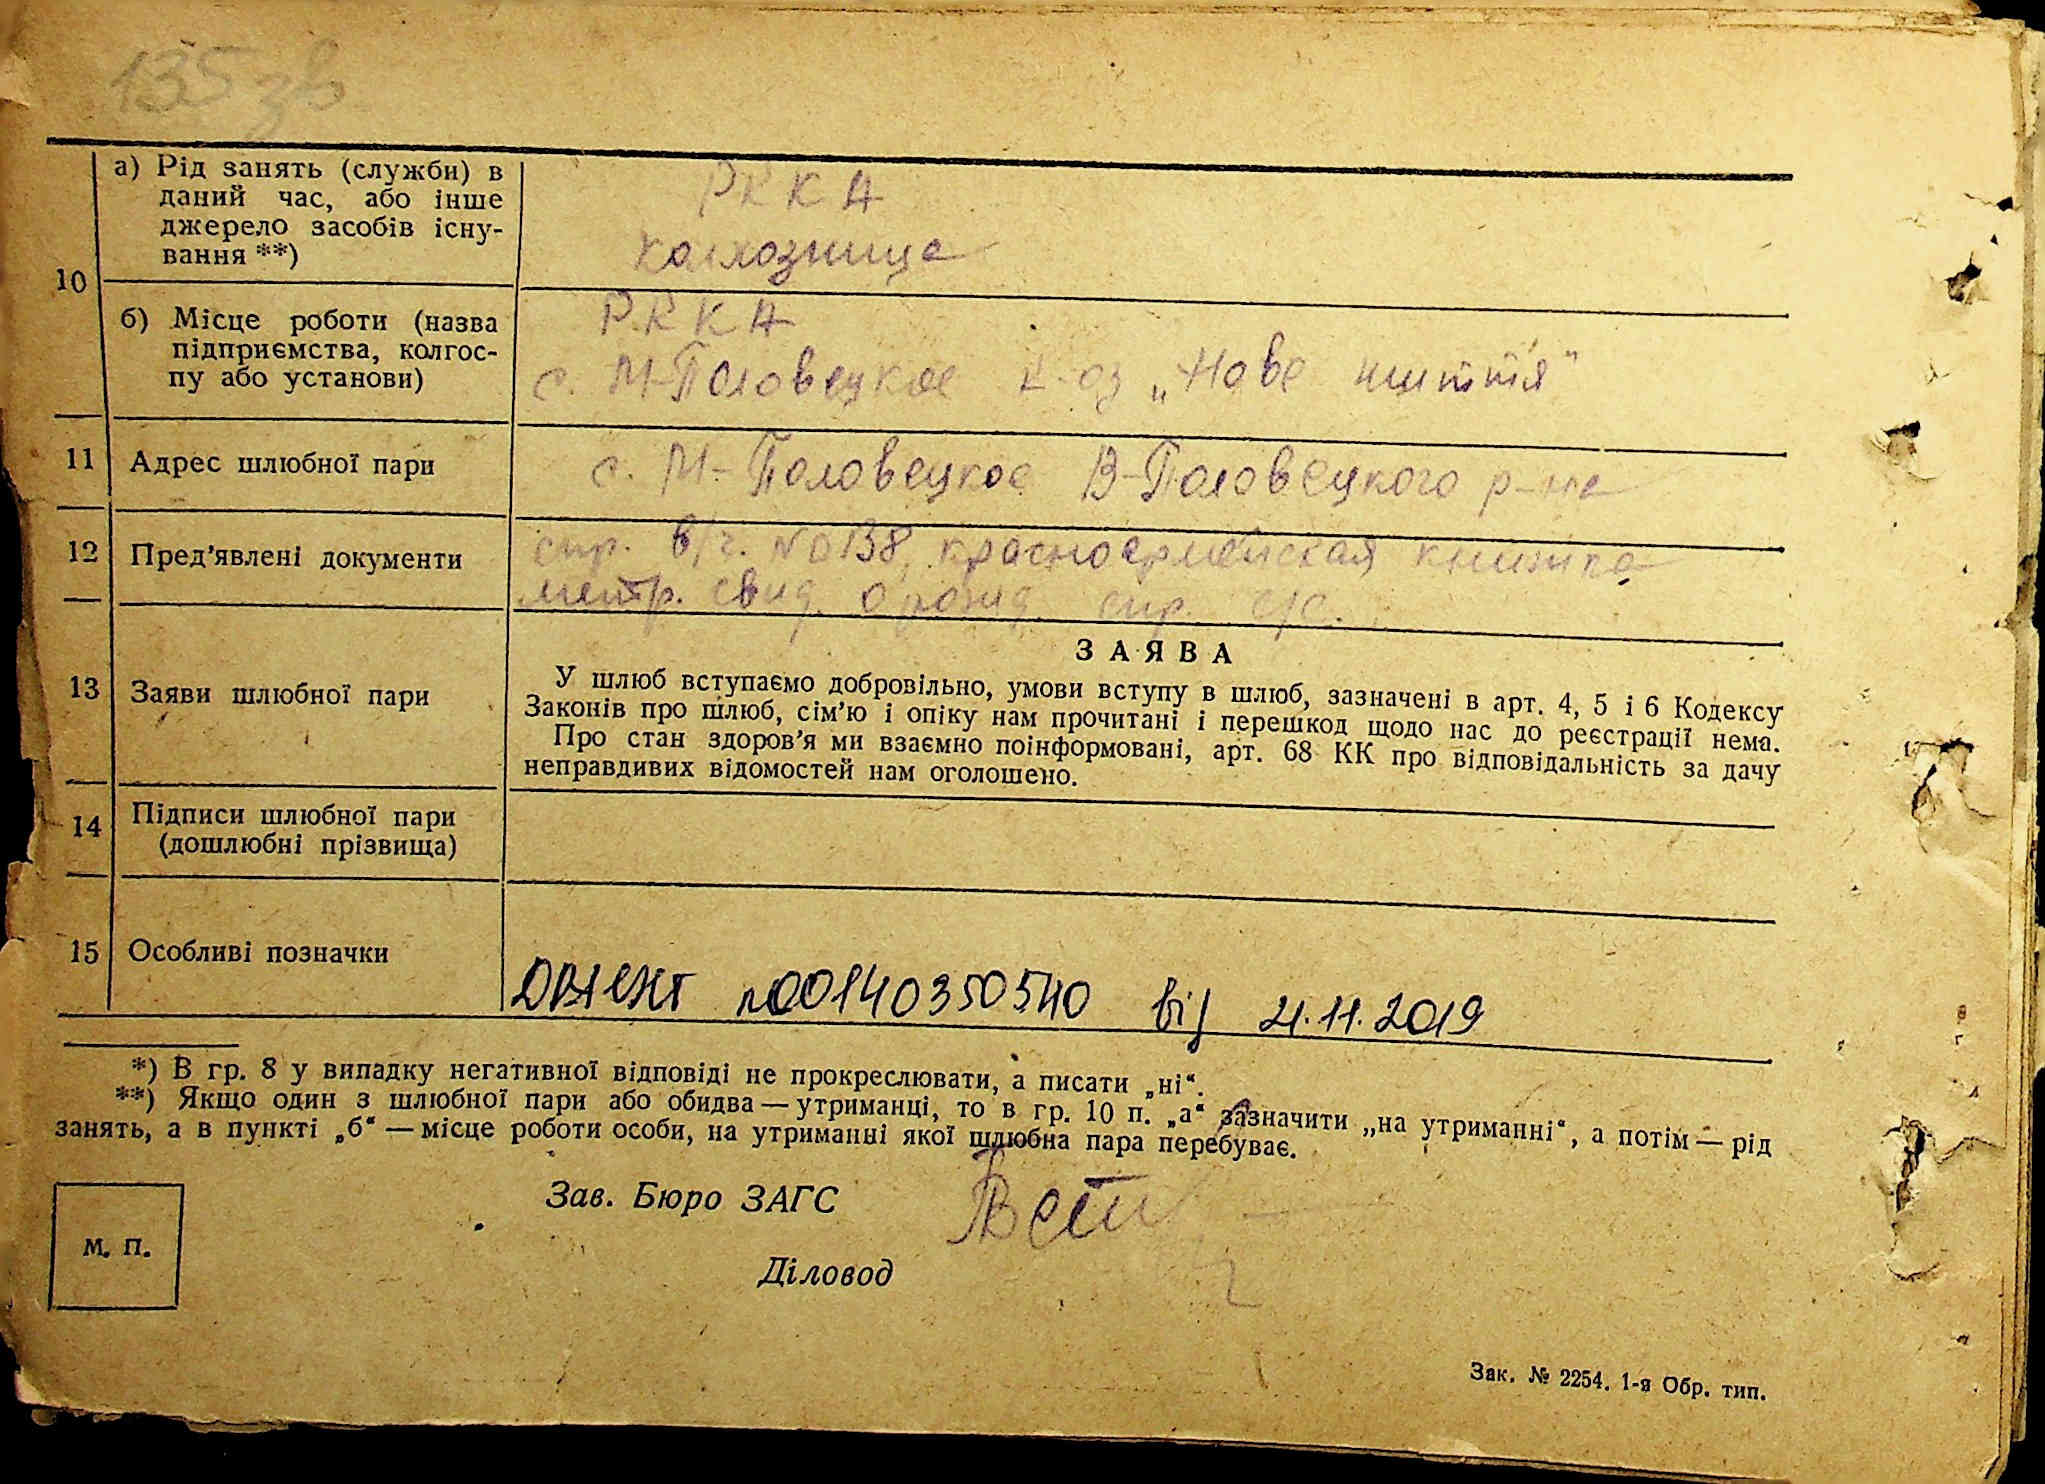 135 зв
а) Рід занять (служби) в
даний час, або інше
джерело засобів існу-
вання **)
РККА
колхозница
10
б) Місце роботи (назва
підприємства, колгос-
пу або установи)
РККА
с. М-Половецкое к-оз „Нове життя"
11 Адрес шлюбної пари
с. М-Половецкое В-Половецкого р-на
12 Пред'явлені документи
спр. в/ч. №0138, красноармейская книжка
метр. свид. о рожд. спр. с/с.
13 Заяви шлюбної пари
ЗАЯВА
У шлюб вступаємо добровільно, умови вступу в шлюб, зазначені в арт. 4, 5 і 6 Кодексу
Законів про шлюб, сім'ю і опіку нам прочитані і перешкод щодо нас до реєстрації нема.
Про стан здоров'я ми взаємно поінформовані, арт. 68 КК про відповідальність за дачу
неправдивих відомостей нам оголошено.
14 Підписи шлюбної пари
(дошлюбні прізвища)
15 Особливі позначки
00140350540 від 21.11.2019
*) В гр. 8 у випадку негативної відповіді не прокреслювати, а писати „ні“.
**) Якщо один з шлюбної пари або обидва — утриманці, то в гр. 10 п. „а“ зазначити „на утриманні“, а потім — рід
занять, а в пункті „б“ — місце роботи особи, на утриманні якої шлюбна пара перебуває.
Зав. Бюро ЗАГС
М. П.
Діловод
Зак. № 2254. 1-я Обр. тип.